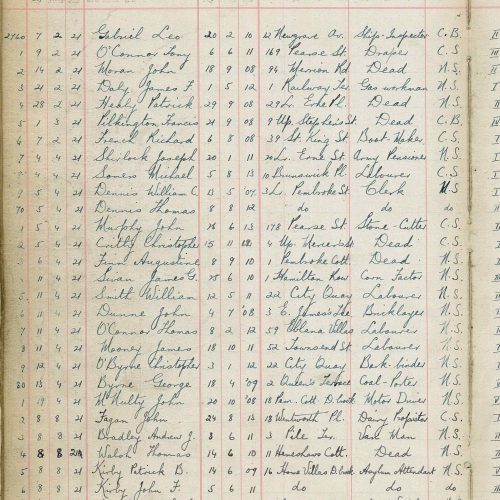 2960 7 2 21 Gabriel Leo 20 2 10 12 Newgrove Av. Ship-Inspector C.B.
1 9 2 21 O'Connor Tony 6 6 11 169 Pearse St. Draper C.S.
2 14 2 21 Moran John 18 9 08 94 Merrion Rd Dead N.S.
3 21 2 21 Daly James F. 1 5 12 1 Railway Ter Gas workman N.S.
4 28 2 21 Healy Patrick 29 9 08 29 Erne Pl. Dead N.S.
5 1 3 21 Pilkington Francis 21 9 08 9 Up. Stephen's St Dead C.B.
6 7 2 21 French Richard 6 8 08 39 St. King St Boot-Maker C.S.
7 4 4 21 Sherlock Joseph 20 1 11 20 Lr. Erne St Army Pensioner N.S.
8 4 4 21 Somers Michael 5 8 13 10 Brunswick Pl Labourer C.S.
9 5 4 21 Dennis William C. 13 5 07 3 Lr. Pembroke St Clerk N.S.
70 5 4 21 Dennis Thomas 8 8 12 do do do
1 5 4 21 Murphy John 16 6 13 178 Pearse St. Stone-Cutter C.S.
2 5 4 21 Christopher 15 11 4 Up. Mercer St Dead C.S.
3 6 4 21 Finn Augustine 8 9 10 1 Pembroke Cott. Dead N.S.
11 4 21 Swan James G. 25 6 10 1 Hamilton Row Corn Factor N.S.
5 11 4 21 Smith William 12 5 11 22 City Quay Labourer N.S.
6 11 4 21 Dunne John 4 7 '08 3 E. James's Ter Bricklayer N.S.
7 11 4 21 O'Connor Thomas 8 2 12 59 Villas Labourer N.S.
8 11 4 21 Mooney James 18 10 11 52 Townsend St Labourer N.S.
9 12 4 21 O'Byrne Christopher 3 1 12 22 City Quay Book-binder N.S.
80 13 4 21 Byrne George 18 4 '09 2 Queen's Terrace Coal-Porter N.S.
1 19 4 21 McNulty John 20 10 '08 18 Pem. Cott. D.brook Motor Driver N.S.
2 8 8 21 Fagan John 24 8 13 18 Wentworth Pl. Dairy Proprietor C.S.
3 8 8 21 Bradley Andrew J. 8 6 11 3 Pile Ter. Van Man N.S.
4 8 8 21 Walsh Thomas 14 6 10 11 Cott. Dead N.S.
5 8 8 21 Kirby Patrick B. 14 6 09 16 Home Villas D.brook Asylum Attendant N.S.
6 8 8 21 Kirby John F. 5 do do do